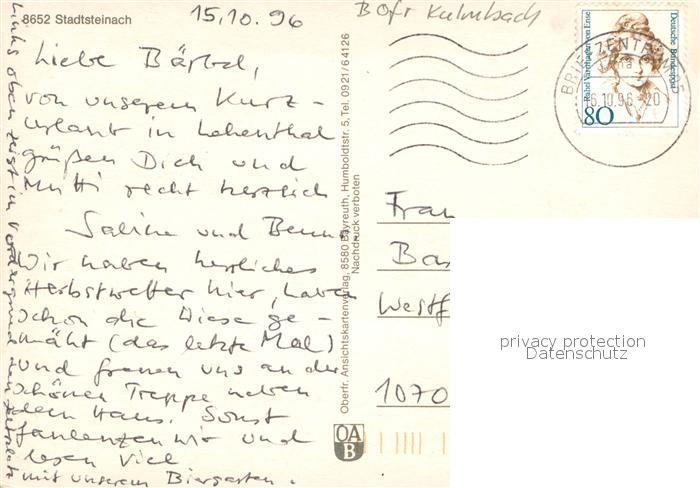 8652 Stadtsteinach
15.10.96
B Ofr Kulmbach
Liebe Bärbel,
von unserem Kurz-
urlaub in Hohenthal
grüßen Dich und
Mutti recht herzlich
Sabine und Benno.
Wir haben herrliches
Herbstwetter hier, haben
schon die Wiese ge-
mäht (das letzte Mal)
und freuen uns an der
schönen Treppe neben
dem Haus. Sonst
faulenzen wir und
lesen viel
mit unserem Biergarten.
Links oben zeigt im Vordergrund den
Oberfr. Ansichtskartenverlag, 8580 Bayreuth, Humboldtstr. 5, Tel. 0921/64126
Nachdruck verboten
OA
B
Rahel Varnhagen von Ense
Deutsche Bundespost
80
BRIEFZENTRUM
16.10.96-20
Frau
Bas
Westf
1070
privacy protection
Datenschutz